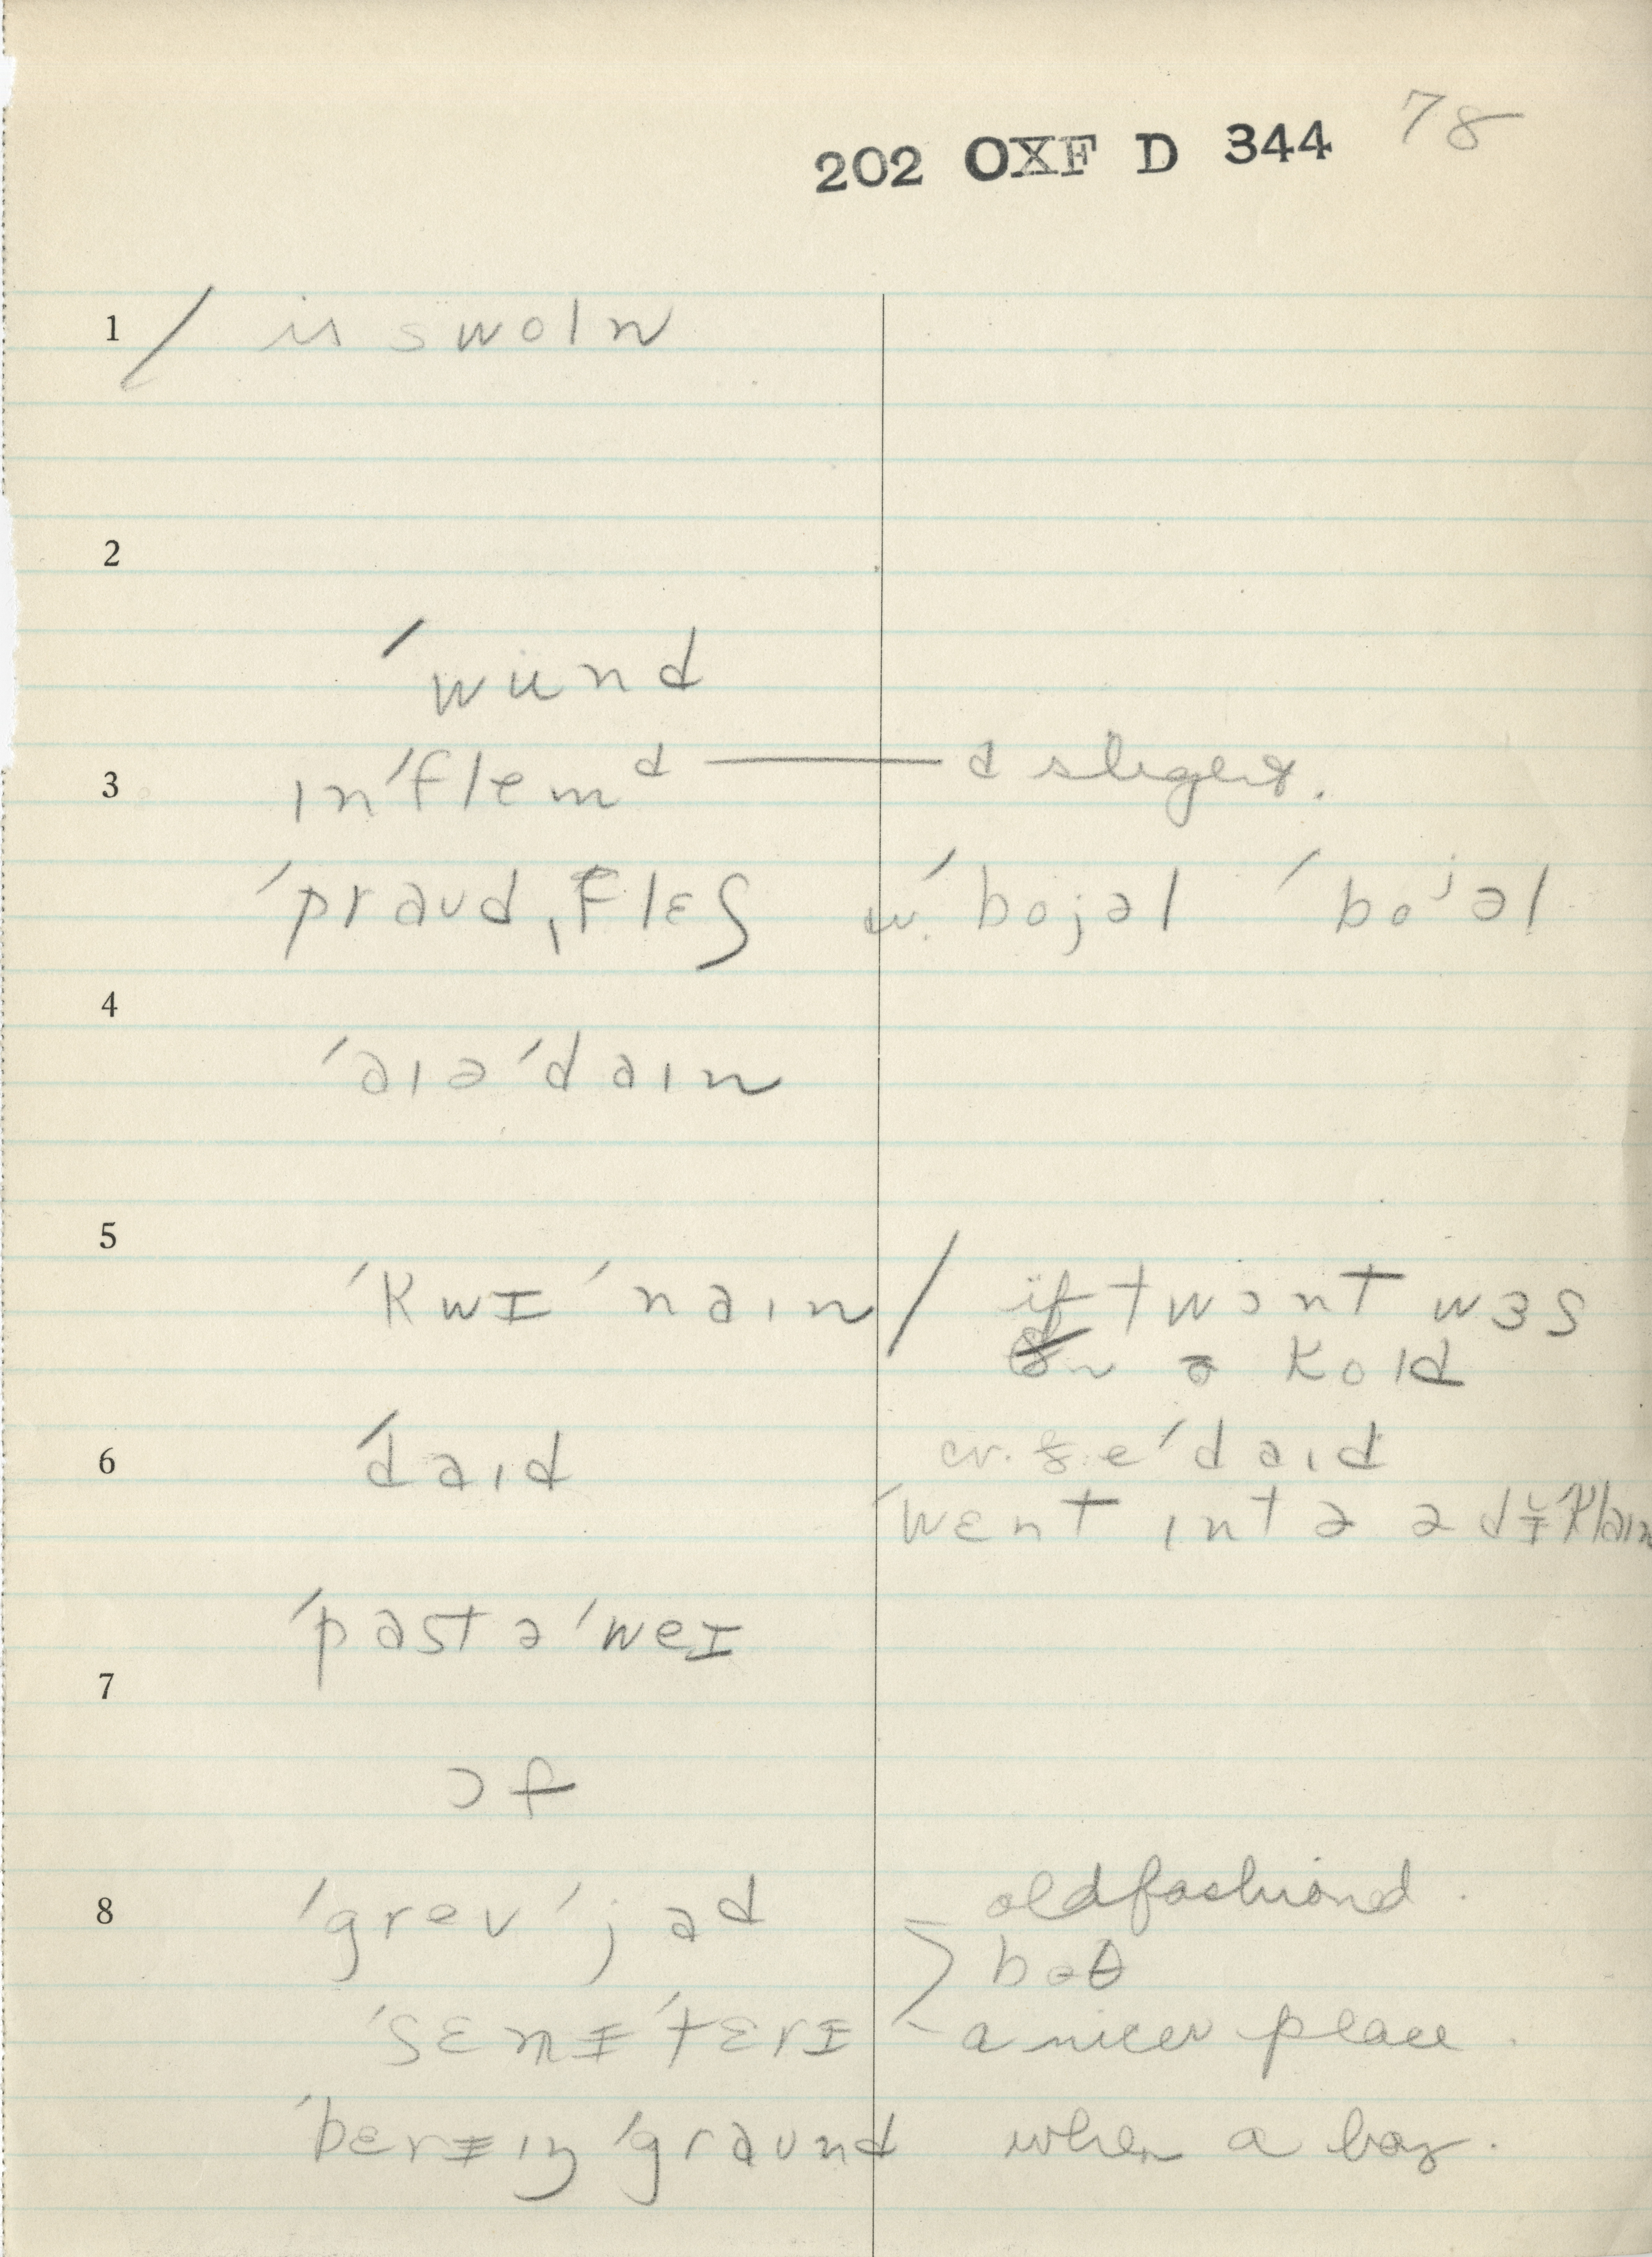 202 OXF D 344 78
1 / is swoln
2
ˈwund
3 ɪnˈflemᵈ — d slight.
ˈpraud ˌflɛʃ w. ˈbojəl ˈboʲəl
4
ˈaɪəˈdaɪn
5
ˈkwɪˈnaɪn / if twɔnt wɜs
ə kold
6 ˈdaɪd cv. ˈdaɪd
ˈwɛnt ɪntə ə dɪˈklaɪn
ˈpast əˈweɪ
7
ɔf
8 ˈgrevˈjad oldfashiond.
boθ
ˈsɛmɨˈtɛrɪ a nicer place.
ˈberɨɪŋ ˈgraund when a boy.